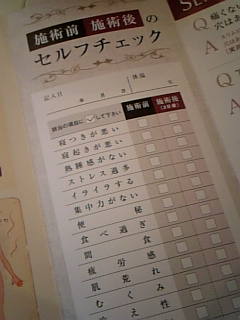 施術前 施術後の
セルフチェック
記入日 年 月 日 体温 ℃
該当の項目に✓して下さい 施術前 施術後
寝つきが悪い
寝起きが悪い
熟睡感がない
ストレス過多
イライラする
集中力がない
便秘
食べ過ぎ
間食
疲労感
肌荒れ
むくみ
え性
Q 痛くな
穴は
A
Q
A